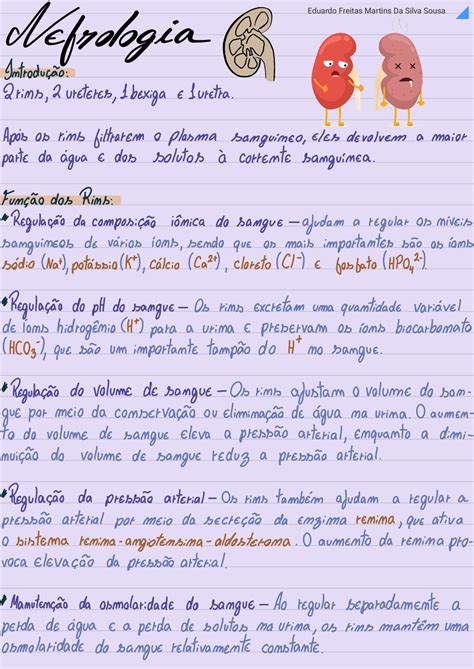 Eduardo Freitas Martins Da Silva Sousa
Nefrologia
Introdução:
2 rins, 2 ureteres, 1 bexiga e 1 uretra.
Após os rins filtrarem o plasma sanguíneo, eles devolvem a maior
parte da água e dos solutos à corrente sanguínea.
Função dos Rins:
Regulação da composição iônica do sangue – ajudam a regular os níveis
sanguíneos de vários íons, sendo que os mais importantes são os íons
sódio (Na⁺), potássio (K⁺), cálcio (Ca²⁺), cloreto (Cl⁻) e fosfato (HPO₄²⁻).
Regulação do pH do sangue – Os rins excretam uma quantidade variável
de íons hidrogênio (H⁺) para a urina e preservam os íons bicarbonato
(HCO₃⁻), que são um importante tampão do H⁺ no sangue.
Regulação do volume de sangue – Os rins ajustam o volume do san-
gue por meio da conservação ou eliminação de água na urina. O aumen-
to do volume de sangue eleva a pressão arterial, enquanto a di-
minuição do volume de sangue reduz a pressão arterial.
Regulação da pressão arterial – Os rins também ajudam a regular a
pressão arterial por meio da secreção da enzima renina, que ativa
o sistema renina-angiotensina-aldosterona. O aumento da renina pro-
voca elevação da pressão arterial.
Manutenção da osmolaridade do sangue – Ao regular separadamente a
perda de água e a perda de solutos na urina, os rins mantêm uma
osmolaridade do sangue relativamente constante.